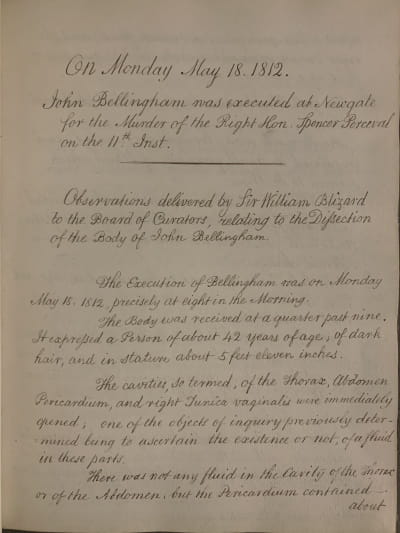 On Monday May 18. 1812.
John Bellingham was executed at Newgate
for the Murder of the Right Hon. Spencer Perceval
on the 11th Inst.
Observations delivered by Sir William Blizard
to the Board of Curators, relating to the Dissection
of the Body of John Bellingham.
The Execution of Bellingham was on Monday
May 18. 1812, precisely at eight in the Morning.
The Body was received at a quarter past nine.
It expressed a Person of about 42 years of age, of dark
hair, and in stature about 5 feet eleven inches.
The cavities, so termed, of the Thorax, Abdomen
Pericardium, and right Tunica vaginalis were immediately
opened; one of the objects of inquiry previously deter-
mined bung to ascertain the existence or not, of a fluid
in these parts.
There was not any fluid in the Cavity of the Thorax
or of the Abdomen, but the Pericardium contained
about